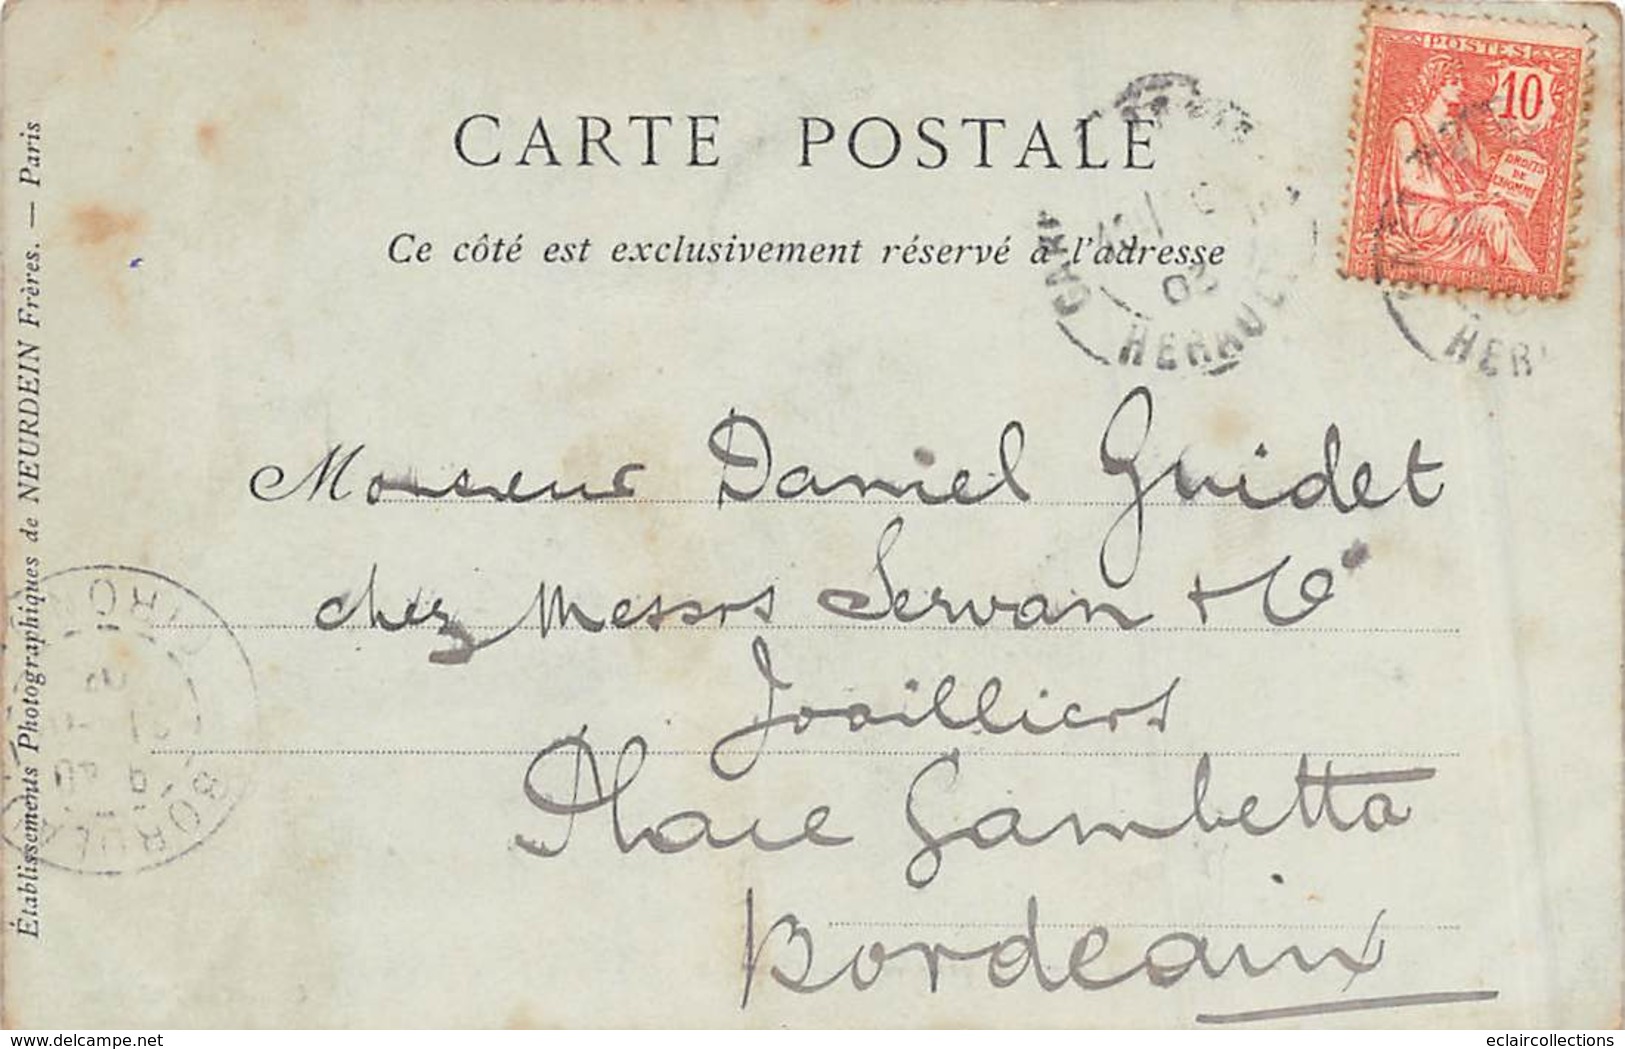 POSTES
10
DROITS
DE
L'HOMME
CARTE POSTALE
Ce côté est exclusivement réservé à l'adresse
03
HERAULT
HER
Monsieur Daniel Guidet
chez Messrs Servan & Cie
Joailliers
Place Gambetta
Bordeaux
Établissements Photographiques de NEURDEIN Frères. — Paris
BORDEAUX
delcampe.net
eclaircollections